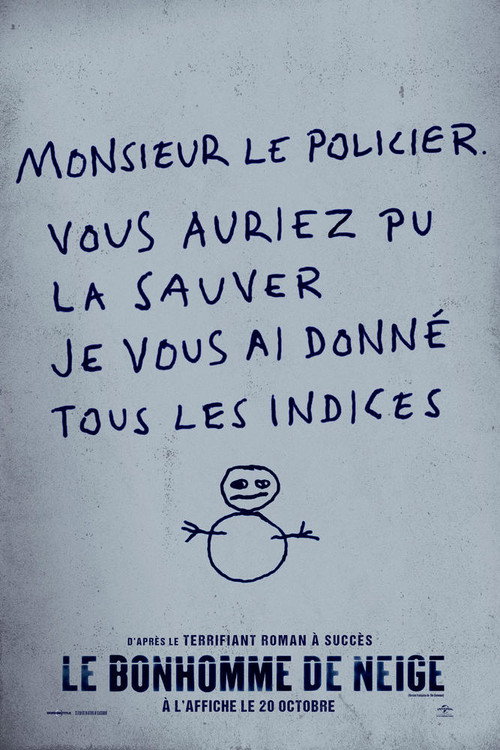 MONSIEUR LE POLICIER.
VOUS AURIEZ PU
LA SAUVER
JE VOUS AI DONNÉ
TOUS LES INDICES
D'APRÈS LE TERRIFIANT ROMAN À SUCCÈS
LE BONHOMME DE NEIGE
À L'AFFICHE LE 20 OCTOBRE